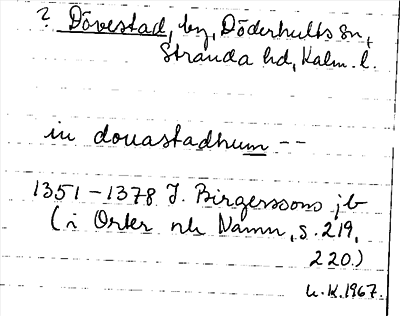 ? Dövestad, by, Döderhults sn,
Stranda hd, Kalm. l.
in douastadhum --
1351-1378 J. Birgerssons jb
(i Orter och Namn, s. 219,
220.)
U.K. 1967.